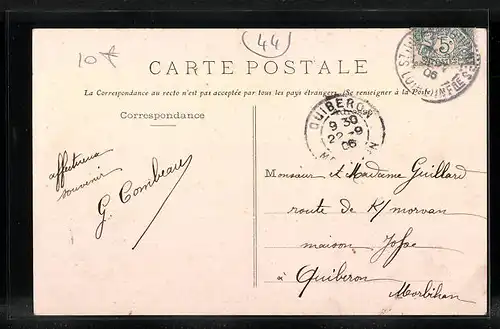 10 f
44
CARTE POSTALE
La Correspondance au recto n'est pas acceptée par tous les pays étrangers (Se renseigner à la Poste)
Correspondance
5
QUIBERON
9 30
22 -9
05
affectueux
souvenir
G. Combeau
Monsieur et Madame Guillard
route de K/morvan
maison
à Quiberon
Morbihan